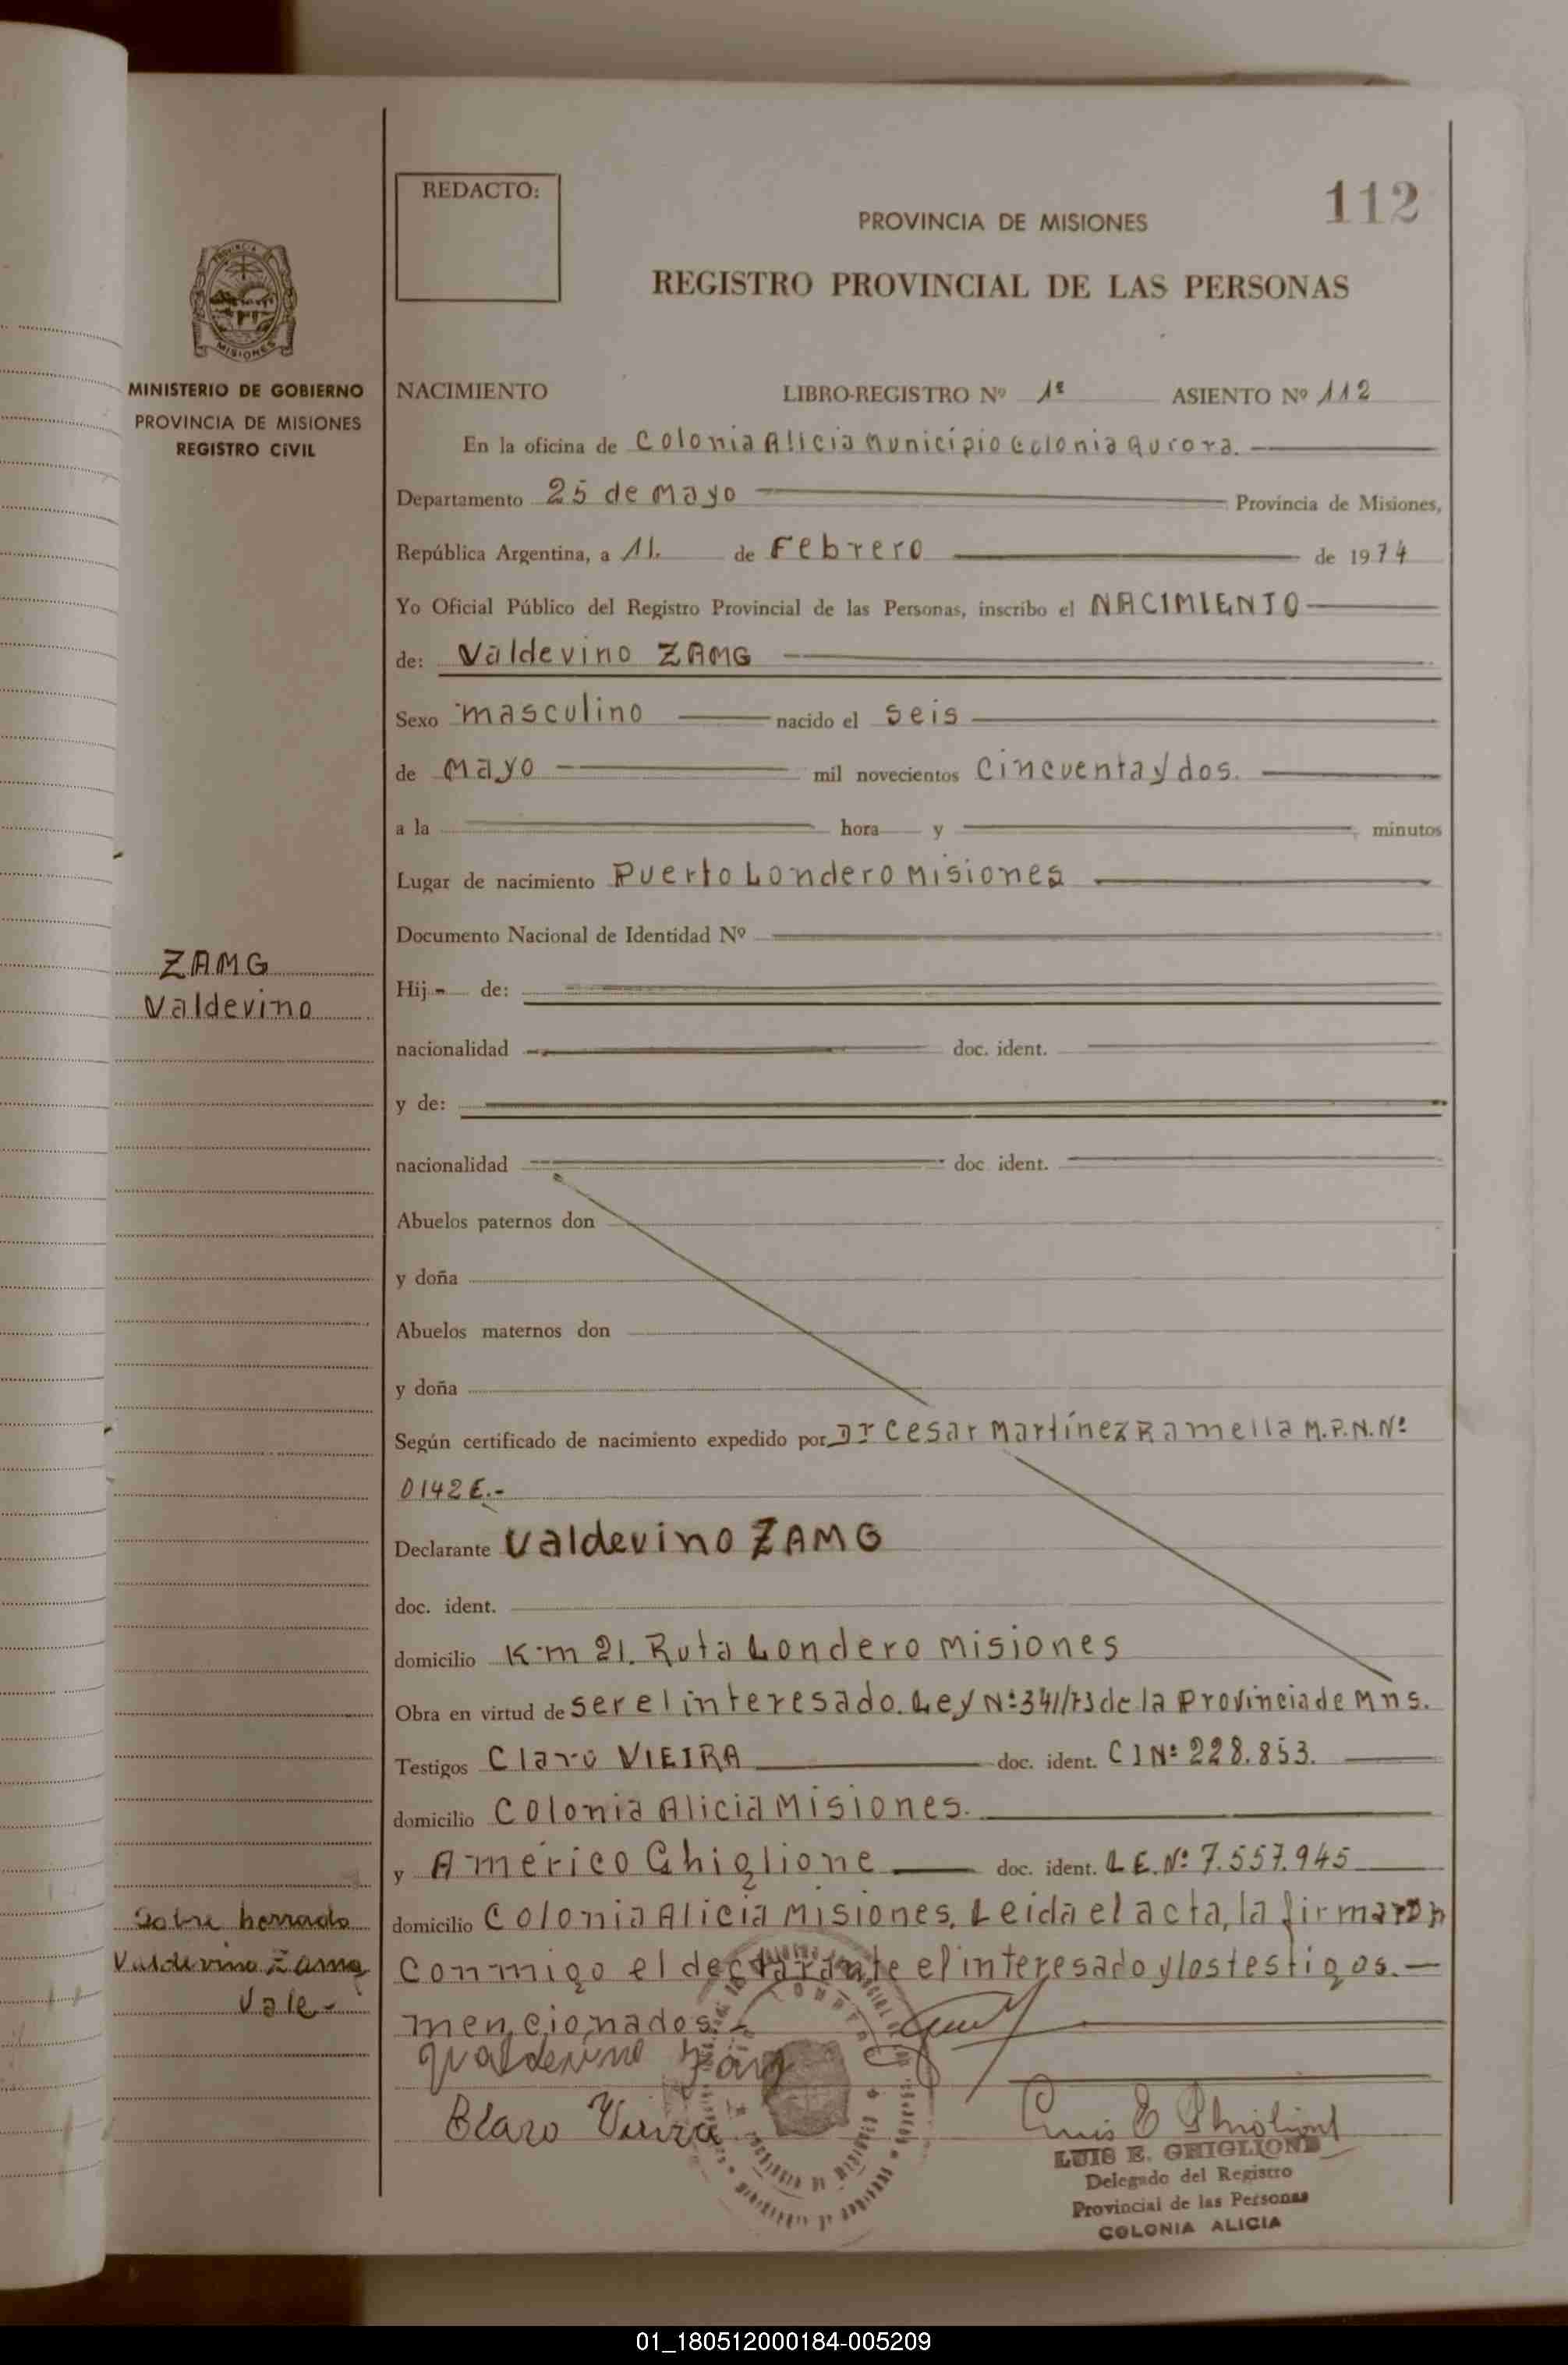 112
REDACTO:
PROVINCIA DE MISIONES
REGISTRO PROVINCIAL DE LAS PERSONAS
MISIONES
MINISTERIO DE GOBIERNO
PROVINCIA DE MISIONES
REGISTRO CIVIL
NACIMIENTO LIBRO-REGISTRO Nº 1º ASIENTO Nº 112
En la oficina de Colonia Alicia Municipio Colonia Aurora.
Departamento 25 de Mayo Provincia de Misiones,
República Argentina, a 11. de Febrero de 1974
Yo Oficial Público del Registro Provincial de las Personas, inscribo el NACIMIENTO
de: Valdevino ZAMG
Sexo masculino nacido el seis
de Mayo mil novecientos Cincuenta y dos.
a la hora y minutos
Lugar de nacimiento Puerto Londero Misiones
Documento Nacional de Identidad Nº
ZAMG
Valdevino
Hij - de:
nacionalidad doc. ident.
y de:
nacionalidad doc. ident.
Abuelos paternos don
y doña
Abuelos maternos don
y doña
Según certificado de nacimiento expedido por Dr Cesar Martínez Ramella M.P.N.Nº
0142 E.-
Declarante Valdevino ZAMG
doc. ident.
domicilio Km 21. Ruta Londero Misiones
Obra en virtud de ser el interesado. Ley Nº 341/73 de la Provincia de Mns.
Testigos Claro VIEIRA doc. ident. CI Nº 228.853.
domicilio Colonia Alicia Misiones.
y Américo Ghiglione doc. ident. L E. Nº 7.557.945
domicilio Colonia Alicia Misiones. Leida el acta, la firmaron
Conmigo el declarante el interesado y los testigos.-
mencionados.-
Sobre borrado
Valdevino Zamg
Vale.-
Valdevino Zamg
Claro Vieira
LUIS E. GHIGLIONE
Delegado del Registro
Provincial de las Personas
COLONIA ALICIA
01_180512000184-005209